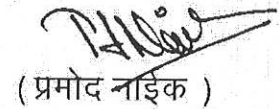 ( प्रमोद नाईक )